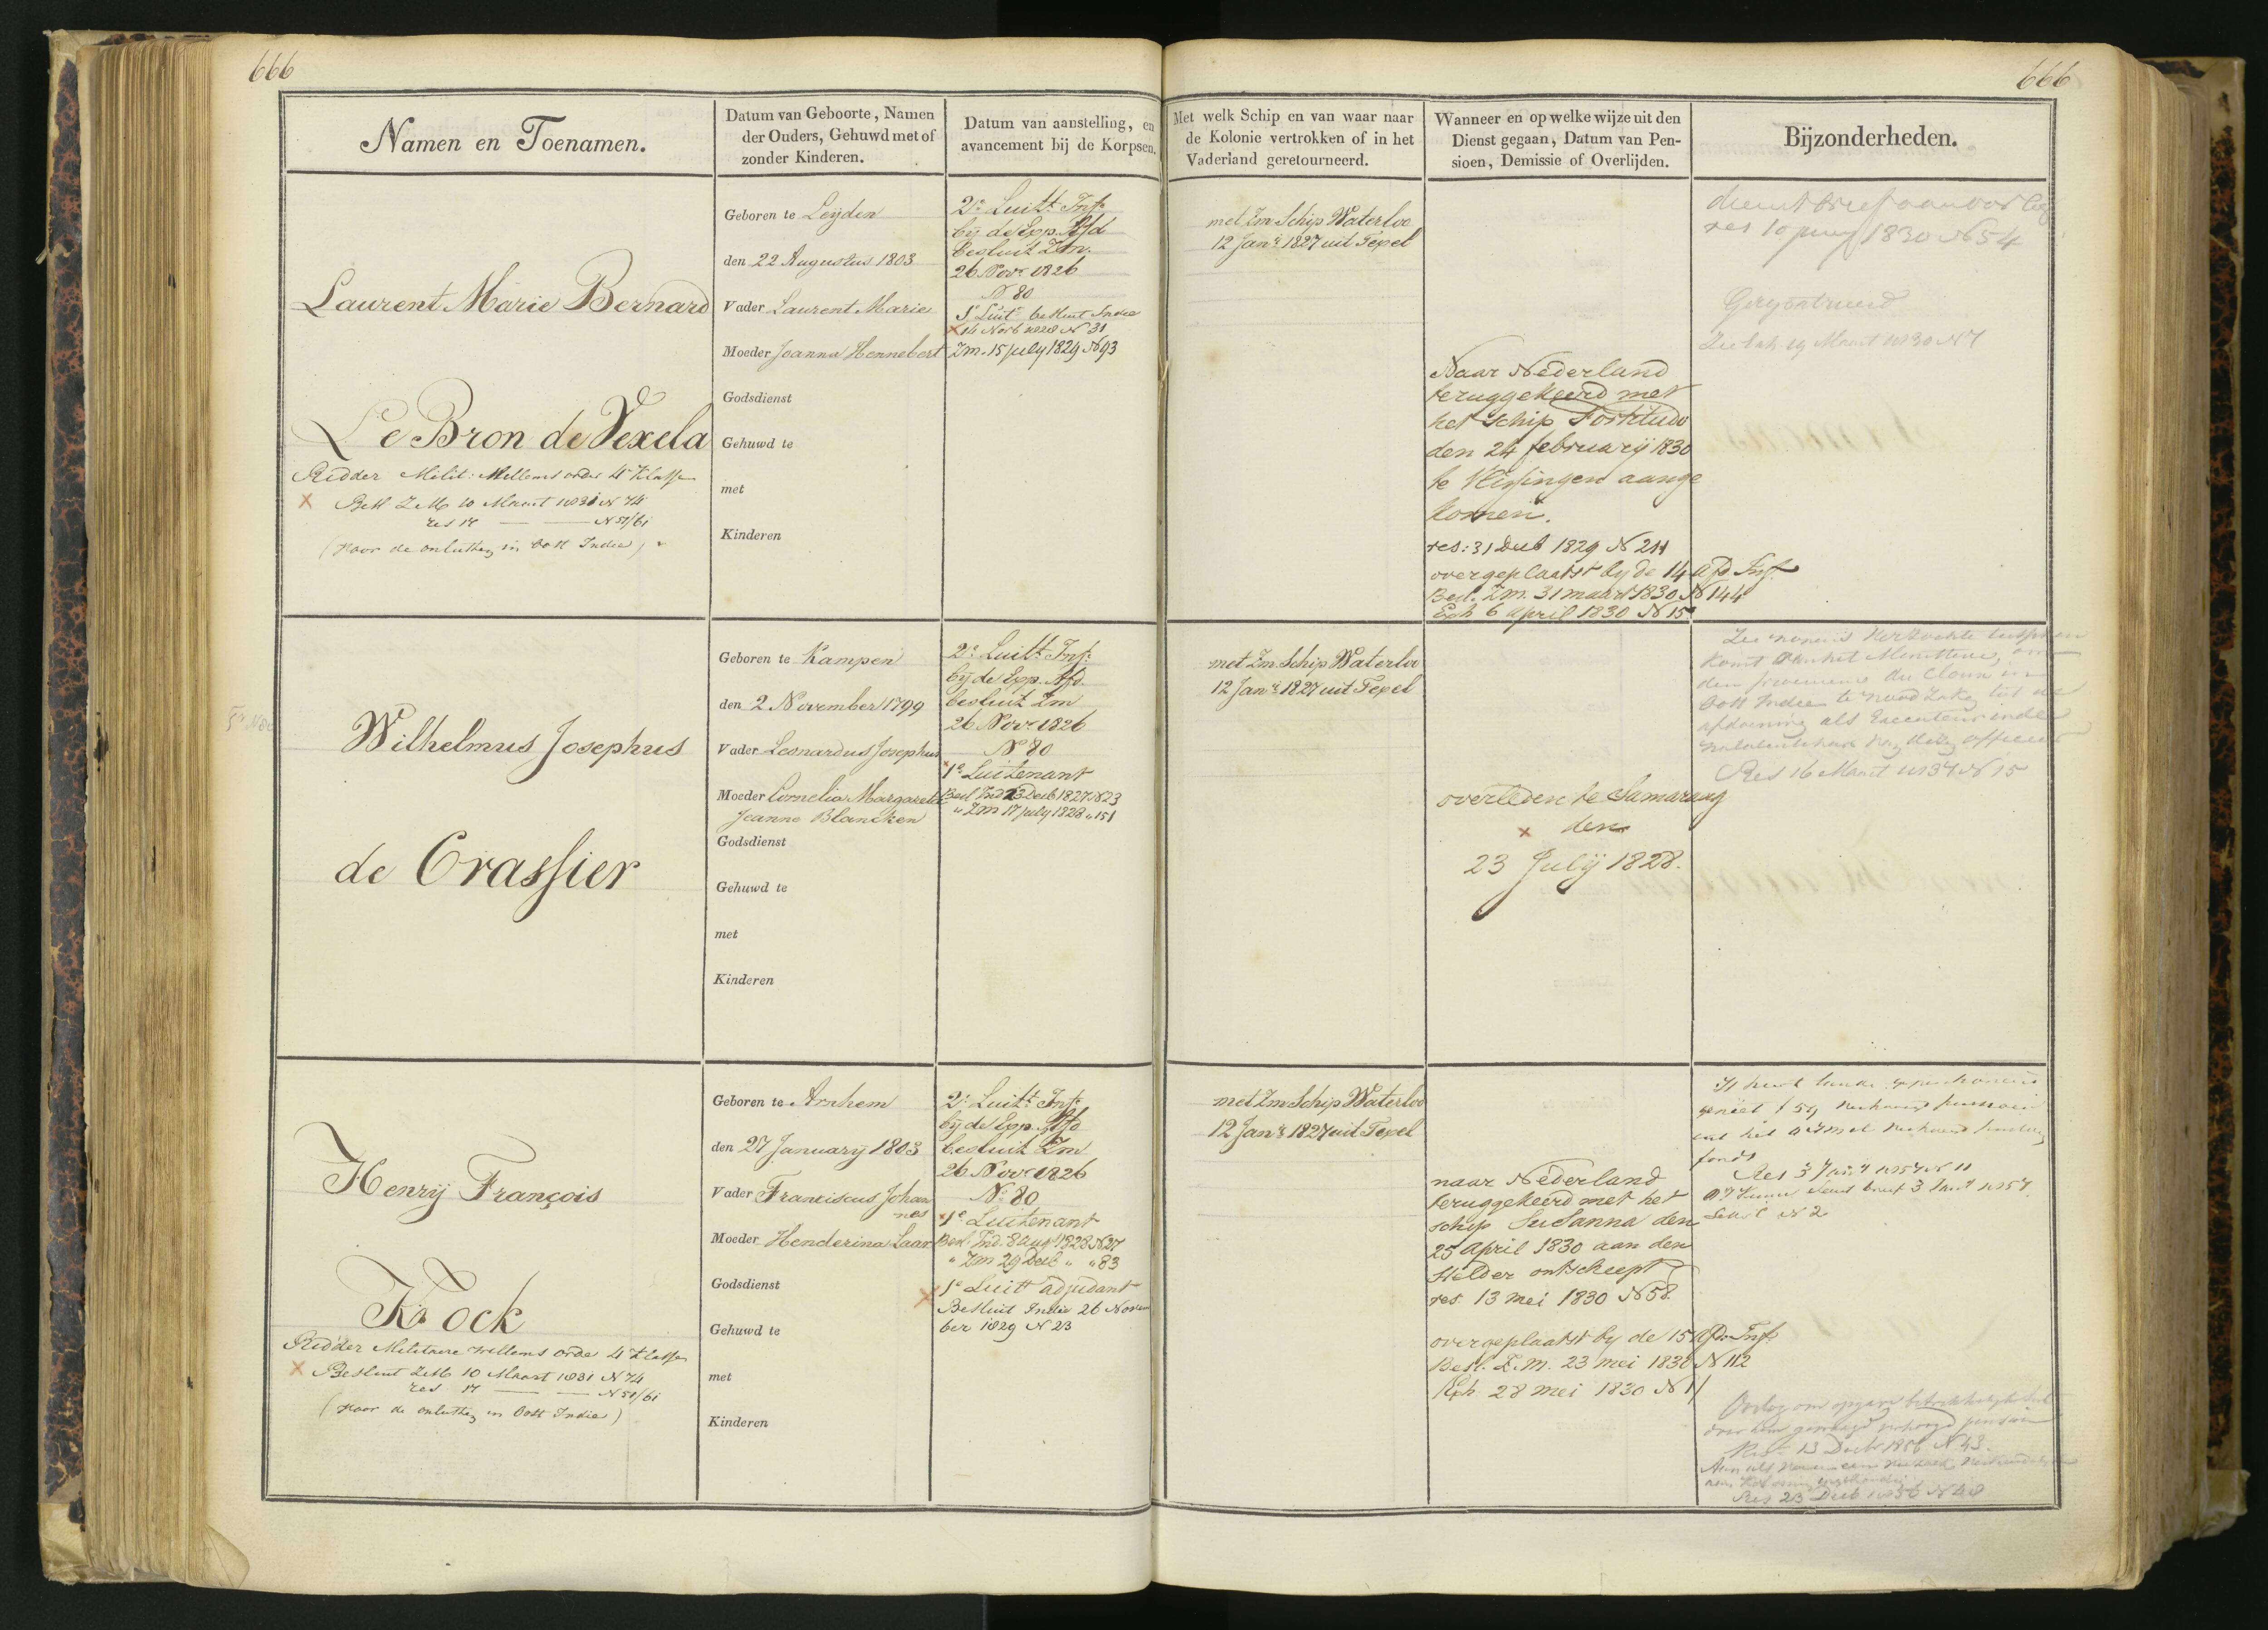 666
666
Namen en Toenamen.
Datum van Geboorte, Namen
der Ouders, Gehuwd met of
zonder Kinderen.
Datum van aanstelling, en
avancement bij de Korpsen.
Met welk Schip en van waar naar
de Kolonie vertrokken of in het
Vaderland geretourneerd.
Wanneer en op welke wijze uit den
Dienst gegaan, Datum van Pen-
sioen, Demissie of Overlijden.
Bijzonderheden.
Laurent Marie Bernard
Le Bron de Vexela
Ridder Milit: Willems order 4e Klasse
Besl. Z M 10 Maart 1831 N 74
res 17 — — N 51/61
(voor de onlusten in Oost Indie)
Geboren te Leyden
den 22 Augustus 1803
Vader Laurent Marie
Moeder Joanna Hennebert
Godsdienst
Gehuwd te
met
Kinderen
2e Luitt. Inf.
bij de Exp. Afd
besluit Zm.
26 Novr 1826
N 80
1e Luit. besluit Indie
14 Novb 1828 N 31
Zm. 15 july 1829 N 93
met Zm Schip Waterloo
12 Jan. 1827 uit Texel
Naar Nederland
teruggekeerd met
het schip Fortitudo
den 24 februarij 1830
te Vlissingen aange
komen.
res: 31 Decb 1829 N 211
overgeplaatst by de 14 afd. Inf.
Besl. Zm. 31 maart 1830 N 144
Exh 6 april 1830 N 15
res 10 juny 1830 N 54
19 Maart 1830 N 7
Wilhelmus Josephus
de Crassier
Geboren te Kampen
den 2 November 1799
Vader Leonardus Josephus
Moeder Cornelia Margareta
Jeanne Blancken
Godsdienst
Gehuwd te
met
Kinderen
2e Luitt. Inf.
bij de Exp. Afd.
besluit Zm
26 Novr 1826
No 80
1e Luitenant
Besl. Ind 23 Decb 1827 N 23
" Zm 17 july 1828 " 151
met Zm. Schip Waterloo
12 Jan. 1827 uit Texel
overleden te Samarang
den
23 Julij 1828.
Oost Indie te
als Executeur in de
officier
Res 16 Maart 1837 N 15
Henrij François
Kock
Ridder Militaire Willems Orde 4e Klasse
Besluit Z M 10 Maart 1831 N 74
res 17 — — N 51/61
(voor de onlusten in Oost Indie)
Geboren te Arnhem
den 27 January 1803
Vader Franciscus Johan
nes
Moeder Henderina Laar
Godsdienst
Gehuwd te
met
Kinderen
2e Luitt. Inf.
bij de Exp. Afd
besluit Zm
26 Novr 1826
No 80
1e Luitenant
Besl. Ind. 8 aug 1828 N 27
" Zm 29 Decb " " 83
1e Luitt adjudant
Besluit Indie 26 Novem
ber 1829 N 23
met Zm Schip Waterloo
12 Jan. 1827 uit Texel
naar Nederland
teruggekeerd met het
schip Susanna den
25 april 1830 aan den
Helder ontscheept
res. 13 mei 1830 N 58.
overgeplaatst by de 15 afd. Inf.
Besl. Z.M. 23 mei 1830 N 112
Exh. 28 mei 1830 N 11
fonds
N 2
pensioen
13 Decb 1856 N 43.
Res 23 Decb 1856 N 48